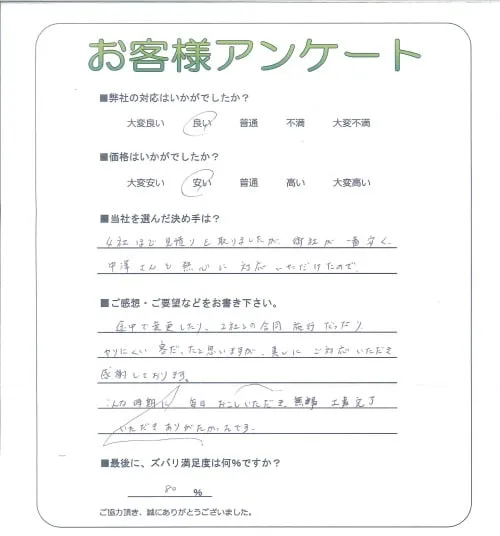 お客様アンケート
■弊社の対応はいかがでしたか?
大変良い 良い 普通 不満 大変不満
■価格はいかがでしたか?
大変安い 安い 普通 高い 大変高い
■当社を選んだ決め手は?
4社ほど見積りを取りましたが、御社が一番安く、
中澤さんも熱心に対応いただけたので。
■ご感想・ご要望などをお書き下さい。
途中で変更したり、2社との合同施行だったり
やりにくい客だったと思いますが、真しにご対応いただき
感謝しております。
時期に毎日おこしいただき、無事工事完了
いただきありがたかったです。
■最後に、ズバリ満足度は何%ですか?
80 %
ご協力頂き、誠にありがとうございました。